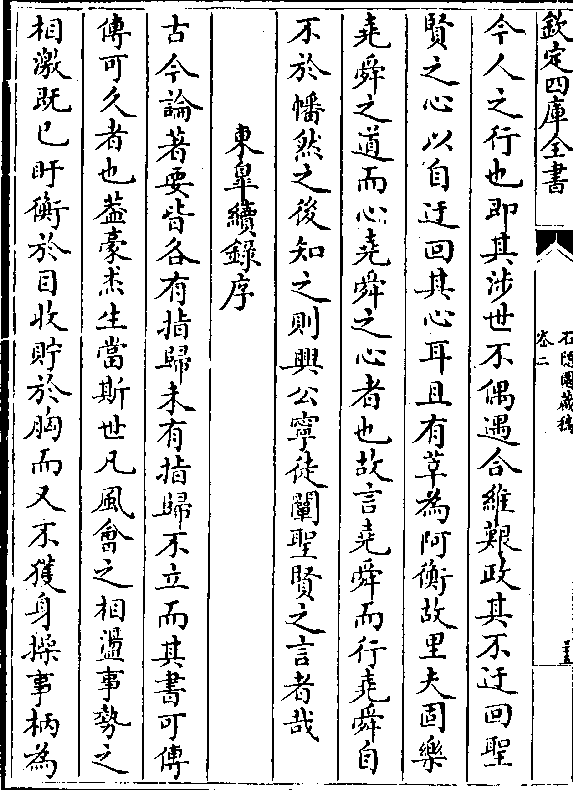 欽定四庫全書
石隱園藏稿
卷二
今人之行也即其涉世不偶遇合維艱政其不迂回聖
賢之心以自迂回其心耳且有莘為阿衡故里夫固樂
堯舜之道而心堯舜之心者也故言堯舜而行堯舜自
不於幡然之後知之則興公寧徒闡聖賢之言者哉
東臯續錄序
古今論著要皆各有指歸未有指歸不立而其書可傳
傳可久者也葢豪杰生當斯世凡風會之相盪事勢之
相激既已盱衡於目收貯於胸而又不獲身操事柄為